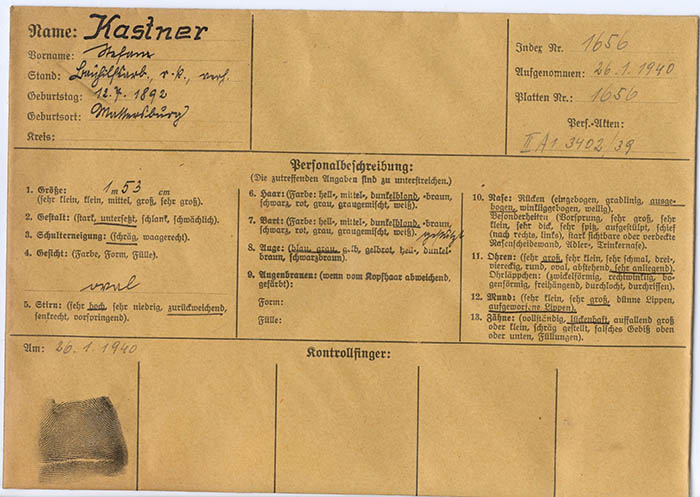 Name: Kastner
Vorname: Stefan
Stand: Bauhilfsarb., r.-k., verh.
Geburtstag: 12.7.1892
Geburtsort: Mattersburg
Kreis:
Index Nr. 1656
Aufgenommen: 26.1.1940
Platten Nr.: 1656
Pers.-Akten:
II A1 3402/39
Personalbeschreibung:
(Die zutreffenden Angaben sind zu unterstreichen.)
1. Größe:
1 m 53 cm
(sehr klein, klein, mittel, groß, sehr groß).
2. Gestalt: (stark, untersetzt, schlank, schwächlich).
3. Schulterneigung: (schräg, waagerecht).
4. Gesicht: (Farbe, Form, Fülle).
oval
5. Stirn: (sehr hoch, sehr niedrig, zurückweichend,
senkrecht, vorspringend).
6. Haar: (Farbe: hell-, mittel-, dunkelblond, -braun,
schwarz, rot, grau, graugemischt, weiß).
7. Bart: (Farbe: hell-, mittel-, dunkelblond, -braun,
schwarz, rot, grau, graugemischt, weiß).
gestutzt
8. Auge: (blau, grau, gelb, gelbrot, hell-, dunkel-
braun, schwarzbraun).
9. Augenbrauen: (wenn vom Kopfhaar abweichend,
gefärbt):
Form:
Fülle:
10. Nase: Rücken (eingebogen, gradlinig, ausge-
bogen, winkliggebogen, wellig).
Besonderheiten (Vorsprung, sehr groß, sehr
klein, sehr dick, sehr spitz, aufgestülpt, schief
(nach rechts, links), stark sichtbare oder verdeckte
Nasenscheidewand, Adler-, Trinkernase).
11. Ohren: (sehr groß, sehr klein, sehr schmal, drei-,
viereckig, rund, oval, abstehend, sehr anliegend).
Ohrläppchen: (zwickelförmig, rechtwinklig, bo-
genförmig, freihängend, durchlocht, durchrissen).
12. Mund: (sehr klein, sehr groß, dünne Lippen,
aufgeworfene Lippen).
13. Zähne: (vollständig, lückenhaft, auffallend groß
oder klein, schräg gestellt, falsches Gebiß oben
oder unten, Füllungen).
Am: 26.1.1940
Kontrollfinger: